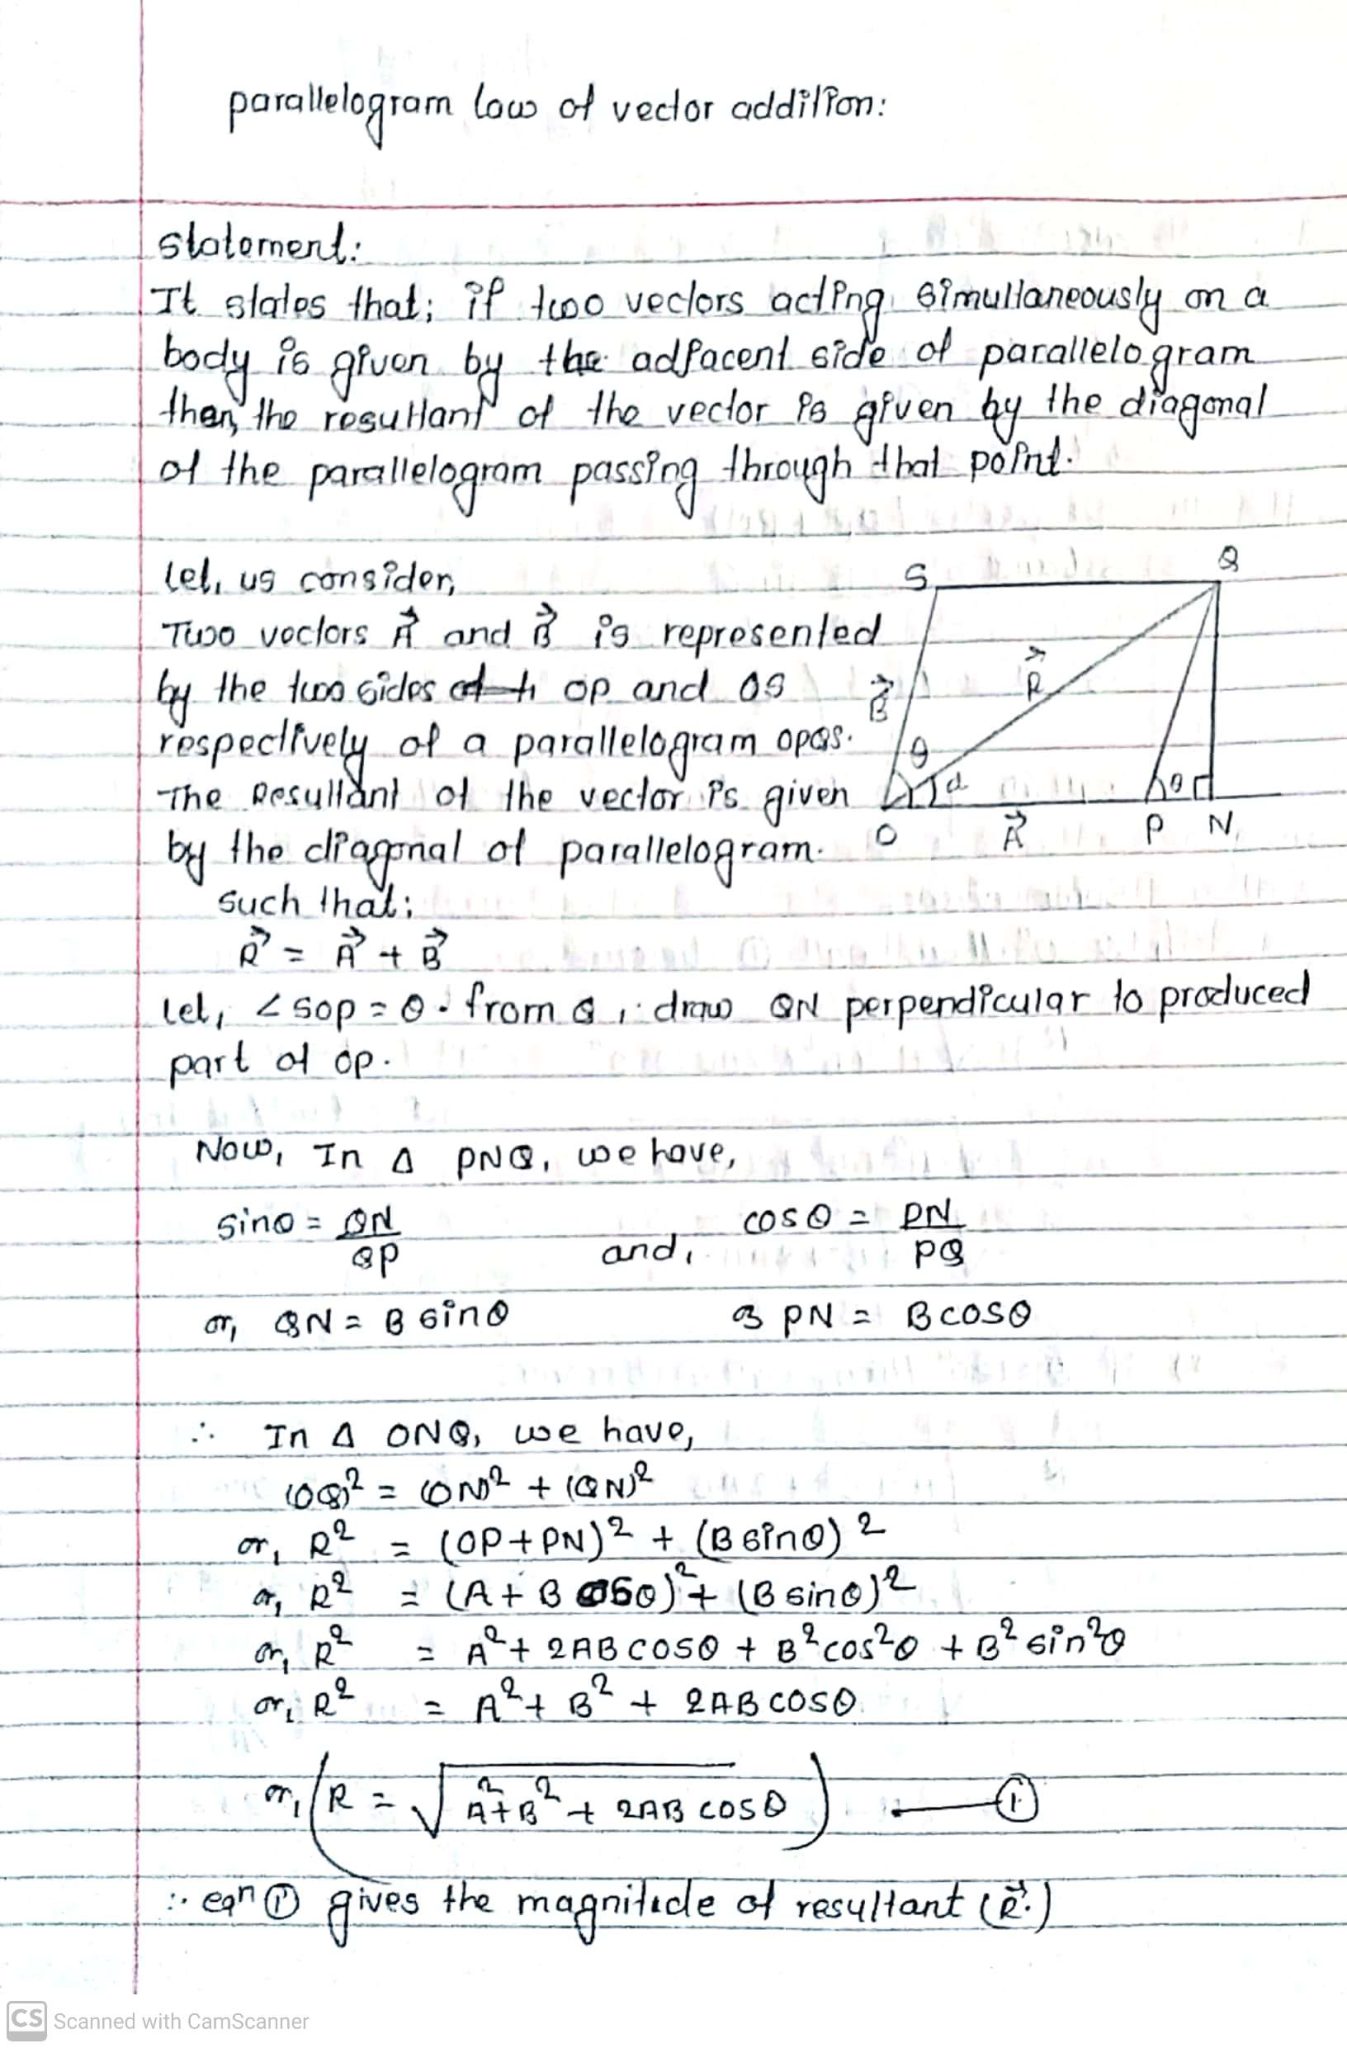 parallelogram law of vector addition:
statement:
It states that; if two vectors acting simultaneously on a
body is given by the adjacent side of parallelogram
then, the resultant of the vector is given by the diagonal
of the parallelogram passing through that point.
let, us consider,
Two vectors A⃗ and B⃗ is represented
by the two sides OP and OS
respectively of a parallelogram OPQS.
The Resultant of the vector is given
by the diagonal of parallelogram.
such that;
R⃗ = A⃗ + B⃗
S Q
R⃗
B⃗
θ α θ
O A⃗ P N
let, ∠SOP = θ. from Q, draw QN perpendicular to produced
part of OP.
Now, In Δ PNQ, we have,
sinθ = QN/QP and, cosθ = PN/PQ
or, QN = B sinθ & PN = B cosθ
∴ In Δ ONQ, we have,
(OQ)² = (ON)² + (QN)²
or, R² = (OP + PN)² + (B sinθ)²
or, R² = (A + B cosθ)² + (B sinθ)²
or, R² = A² + 2AB cosθ + B² cos²θ + B² sin²θ
or, R² = A² + B² + 2AB cosθ
or, (R = √A² + B² + 2AB cosθ) — (i)
∴ eqn (i) gives the magnitude of resultant (R⃗.)
CS Scanned with CamScanner